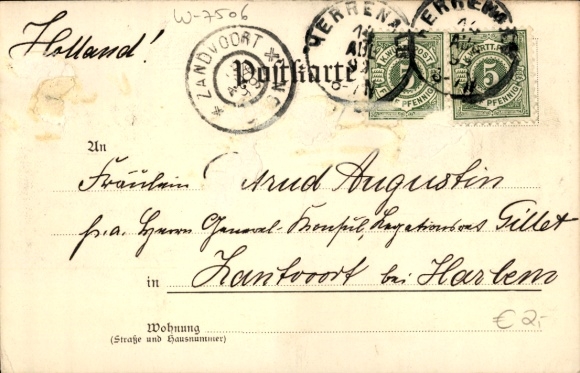 W-7506
Holland!
ZANDVOORT
HERRENALB
14 AUG
HERRENALB
14 AUG
K. WÜRTT. POST
5
FÜNF PFENNIG
Postkarte
An
Fräulein Trud Augustin
p.a. Herrn General-Konsul, Legationsrat Gillet
in Zantvoort bei Harlem
Wohnung
(Straße und Hausnummer)
€ 2,-